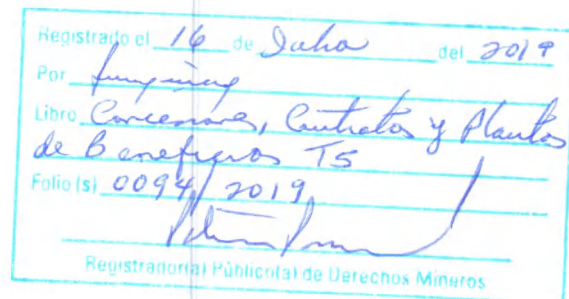 Registrado el 16 de Julio del 2019
Por
Libro Concesiones, Contratos y Plantas
de Beneficios TS
Folio (s) 0094/2019
Registrador(a) Público(a) de Derechos Mineros